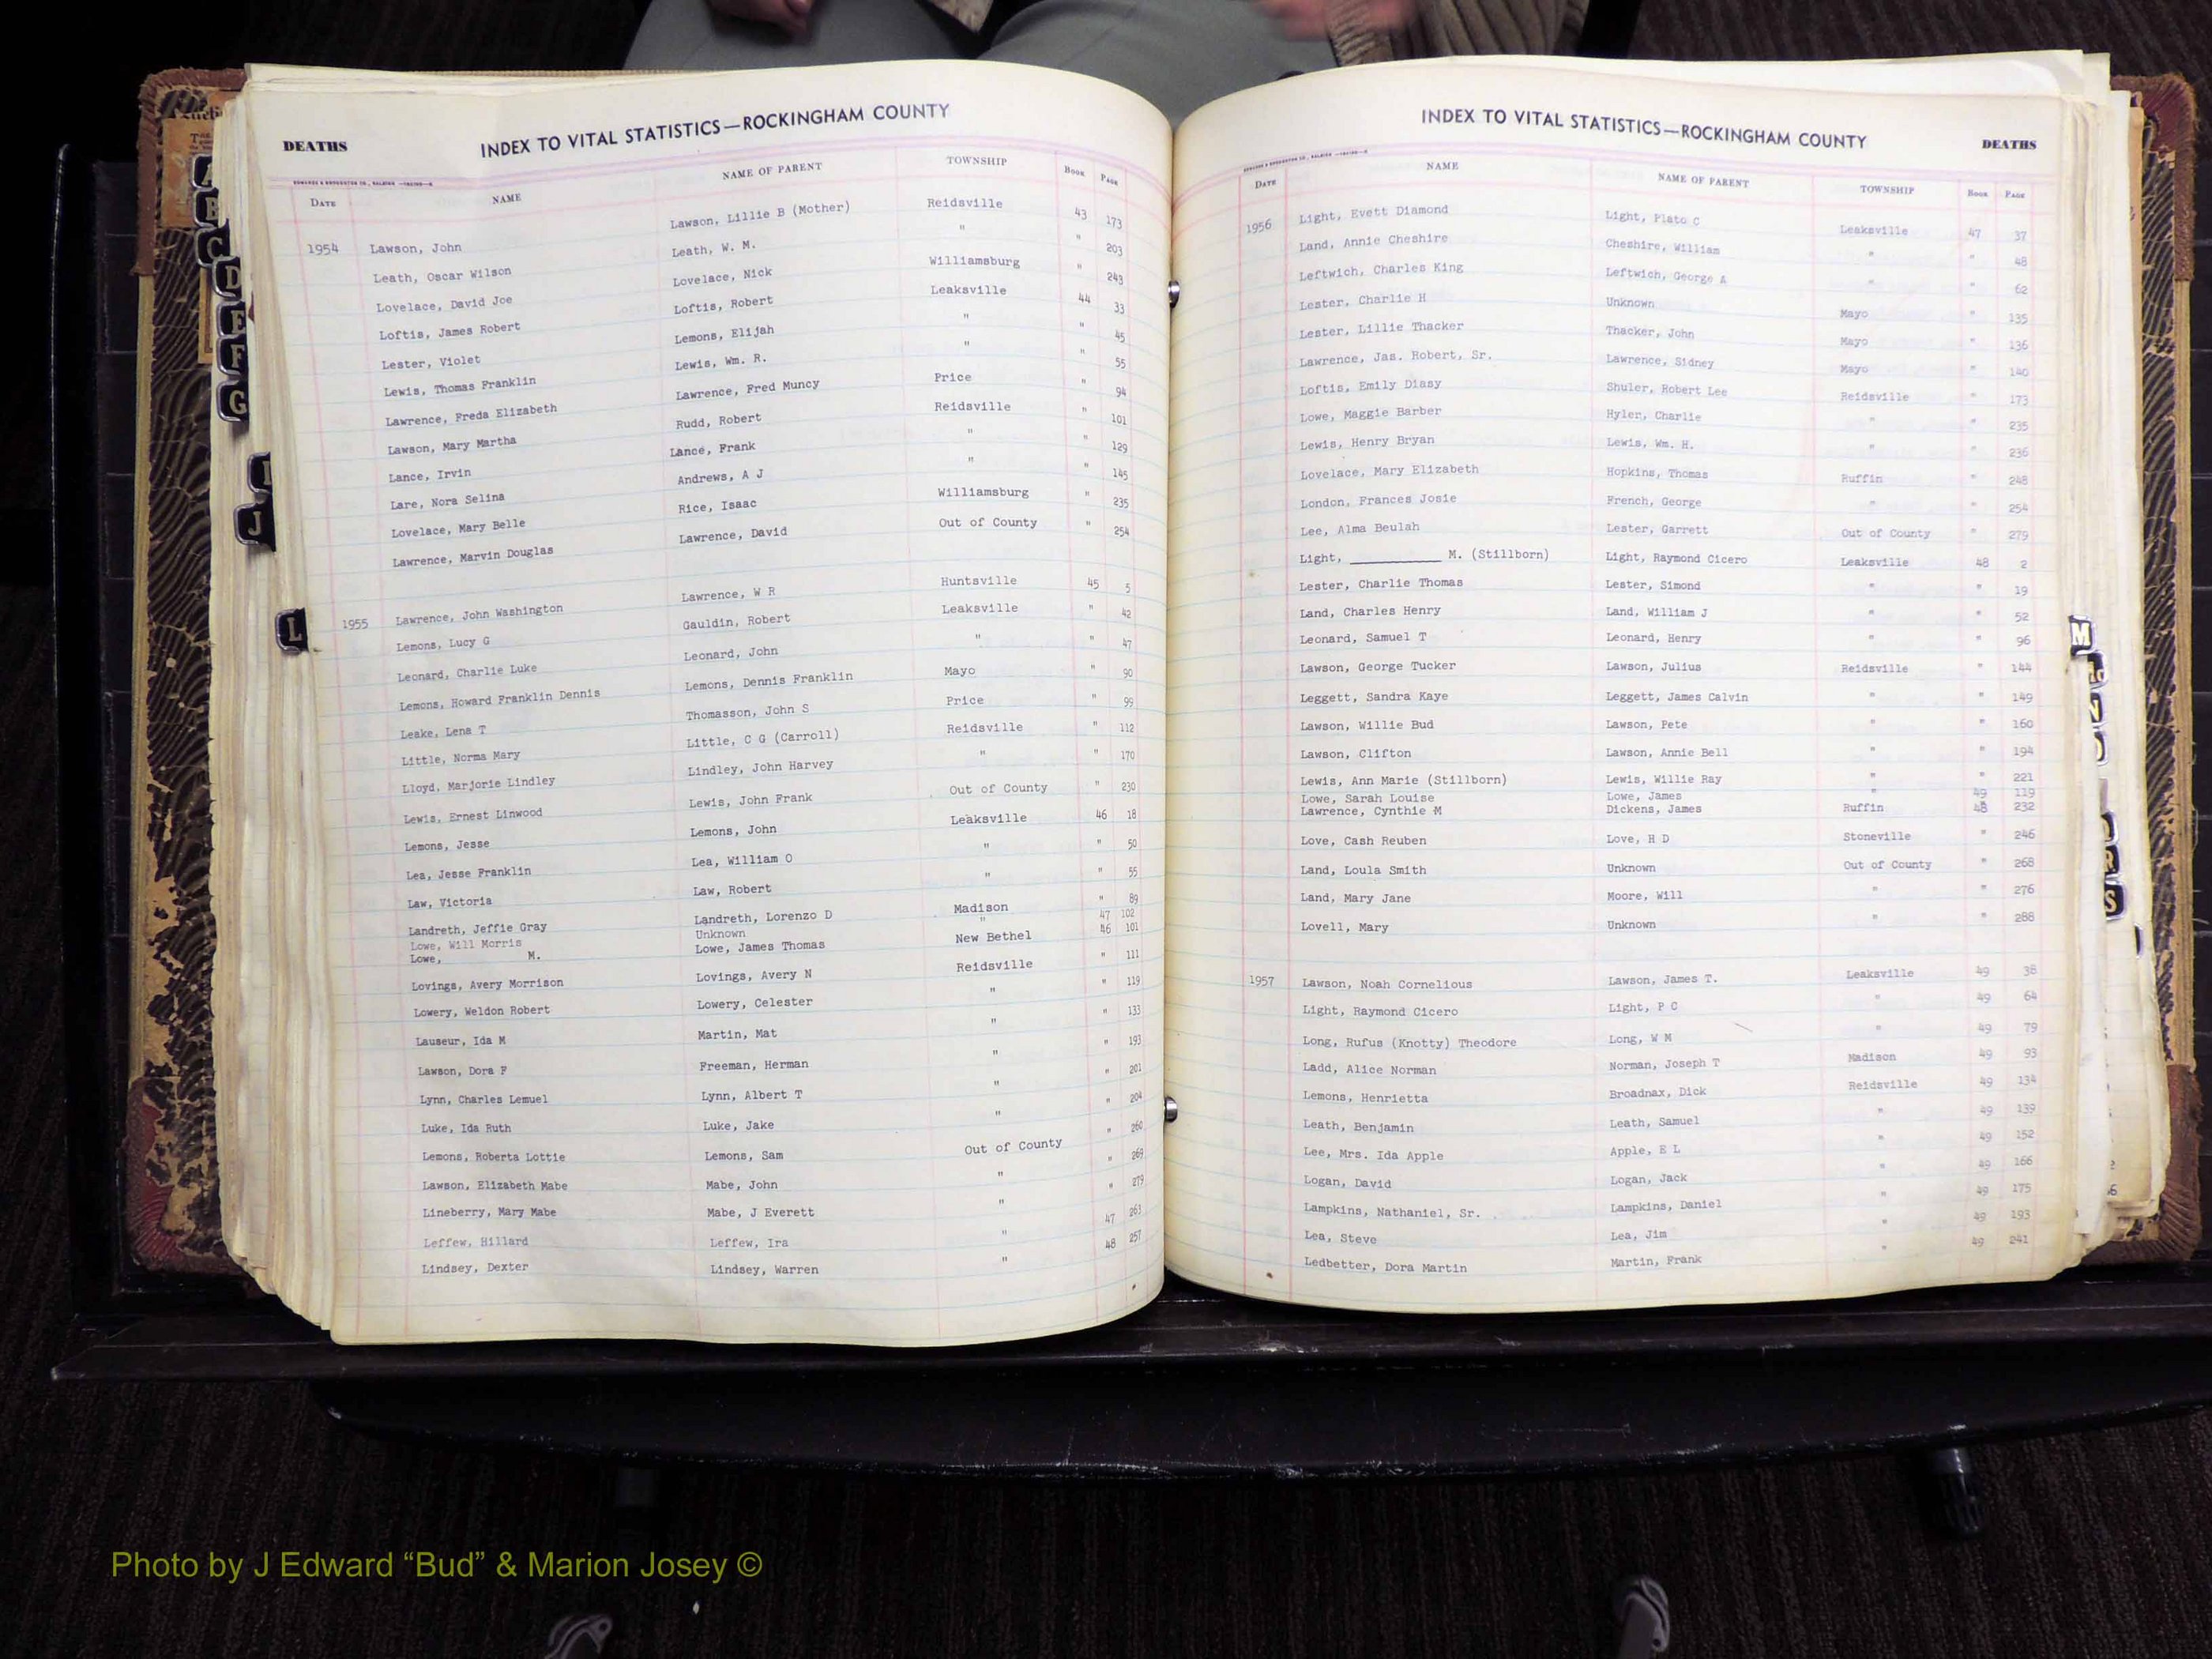 DEATHS
INDEX TO VITAL STATISTICS—ROCKINGHAM COUNTY
DATE NAME NAME OF PARENT TOWNSHIP BOOK PAGE
1954 Lawson, John Lawson, Lillie B (Mother) Reidsville 43 173
Leath, Oscar Wilson Leath, W. M. " " 203
Lovelace, David Joe Lovelace, Nick Williamsburg " 243
Loftis, James Robert Loftis, Robert Leaksville 44 33
Lester, Violet Lemons, Elijah " " 45
Lewis, Thomas Franklin Lewis, Wm. R. " " 55
Lawrence, Freda Elizabeth Lawrence, Fred Muncy Price " 94
Lawson, Mary Martha Rudd, Robert Reidsville " 101
Lance, Irvin Lance, Frank " " 129
Lare, Nora Selina Andrews, A J " " 145
Lovelace, Mary Belle Rice, Isaac Williamsburg " 235
Lawrence, Marvin Douglas Lawrence, David Out of County " 254
1955 Lawrence, John Washington Lawrence, W R Huntsville 45 5
Lemons, Lucy G Gauldin, Robert Leaksville " 42
Leonard, Charlie Luke Leonard, John " " 47
Lemons, Howard Franklin Dennis Lemons, Dennis Franklin Mayo " 90
Leake, Lena T Thomasson, John S Price " 99
Little, Norma Mary Little, C G (Carroll) Reidsville " 112
Lloyd, Marjorie Lindley Lindley, John Harvey " " 170
Lewis, Ernest Linwood Lewis, John Frank Out of County " 230
Lemons, Jesse Lemons, John Leaksville 46 18
Lea, Jesse Franklin Lea, William O " " 50
Law, Victoria Law, Robert " " 55
Landreth, Jeffie Gray Landreth, Lorenzo D Madison " 89
Lowe, Will Morris Unknown " 47 102
Lowe, M. Lowe, James Thomas New Bethel 46 101
Lovings, Avery Morrison Lovings, Avery N Reidsville " 111
Lowery, Weldon Robert Lowery, Celester " " 119
Lauseur, Ida M Martin, Mat " " 133
Lawson, Dora F Freeman, Herman " " 193
Lynn, Charles Lemuel Lynn, Albert T " " 201
Luke, Ida Ruth Luke, Jake " " 204
Lemons, Roberta Lottie Lemons, Sam Out of County " 260
Lawson, Elizabeth Mabe Mabe, John " " 269
Lineberry, Mary Mabe Mabe, J Everett " " 279
Leffew, Hillard Leffew, Ira " 47 263
Lindsey, Dexter Lindsey, Warren " 48 257
INDEX TO VITAL STATISTICS—ROCKINGHAM COUNTY
DEATHS
DATE NAME NAME OF PARENT TOWNSHIP BOOK PAGE
1956 Light, Evett Diamond Light, Plato C Leaksville 47 37
Land, Annie Cheshire Cheshire, William " " 48
Leftwich, Charles King Leftwich, George A " " 62
Lester, Charlie H Unknown Mayo " 135
Lester, Lillie Thacker Thacker, John Mayo " 136
Lawrence, Jas. Robert, Sr. Lawrence, Sidney Mayo " 140
Loftis, Emily Diasy Shuler, Robert Lee Reidsville " 173
Lowe, Maggie Barber Hyler, Charlie " " 235
Lewis, Henry Bryan Lewis, Wm. H. " " 236
Lovelace, Mary Elizabeth Hopkins, Thomas Ruffin " 248
London, Frances Josie French, George " " 254
Lee, Alma Beulah Lester, Garrett Out of County " 279
Light, ____________ M. (Stillborn) Light, Raymond Cicero Leaksville 48 2
Lester, Charlie Thomas Lester, Simond " " 19
Land, Charles Henry Land, William J " " 52
Leonard, Samuel T Leonard, Henry " " 96
Lawson, George Tucker Lawson, Julius Reidsville " 144
Leggett, Sandra Kaye Leggett, James Calvin " " 149
Lawson, Willie Bud Lawson, Pete " " 160
Lawson, Clifton Lawson, Annie Bell " " 194
Lewis, Ann Marie (Stillborn) Lewis, Willie Ray " " 221
Lowe, Sarah Louise Lowe, James " 49 119
Lawrence, Cynthie M Dickens, James Ruffin 48 232
Love, Cash Reuben Love, H D Stoneville " 246
Land, Loula Smith Unknown Out of County " 268
Land, Mary Jane Moore, Will " " 276
Lovell, Mary Unknown " " 288
1957 Lawson, Noah Cornelious Lawson, James T. Leaksville 49 38
Light, Raymond Cicero Light, P C " 49 64
Long, Rufus (Knotty) Theodore Long, W M " 49 79
Ladd, Alice Norman Norman, Joseph T Madison 49 93
Lemons, Henrietta Broadnax, Dick Reidsville 49 134
Leath, Benjamin Leath, Samuel " 49 139
Lee, Mrs. Ida Apple Apple, E L " 49 152
Logan, David Logan, Jack " 49 166
Lampkins, Nathaniel, Sr. Lampkins, Daniel " 49 175
Lea, Steve Lea, Jim " 49 193
Ledbetter, Dora Martin Martin, Frank " 49 241
A
B
C
D
E
F
G
J
L
M
N
R
S
Photo by J Edward “Bud” & Marion Josey ©